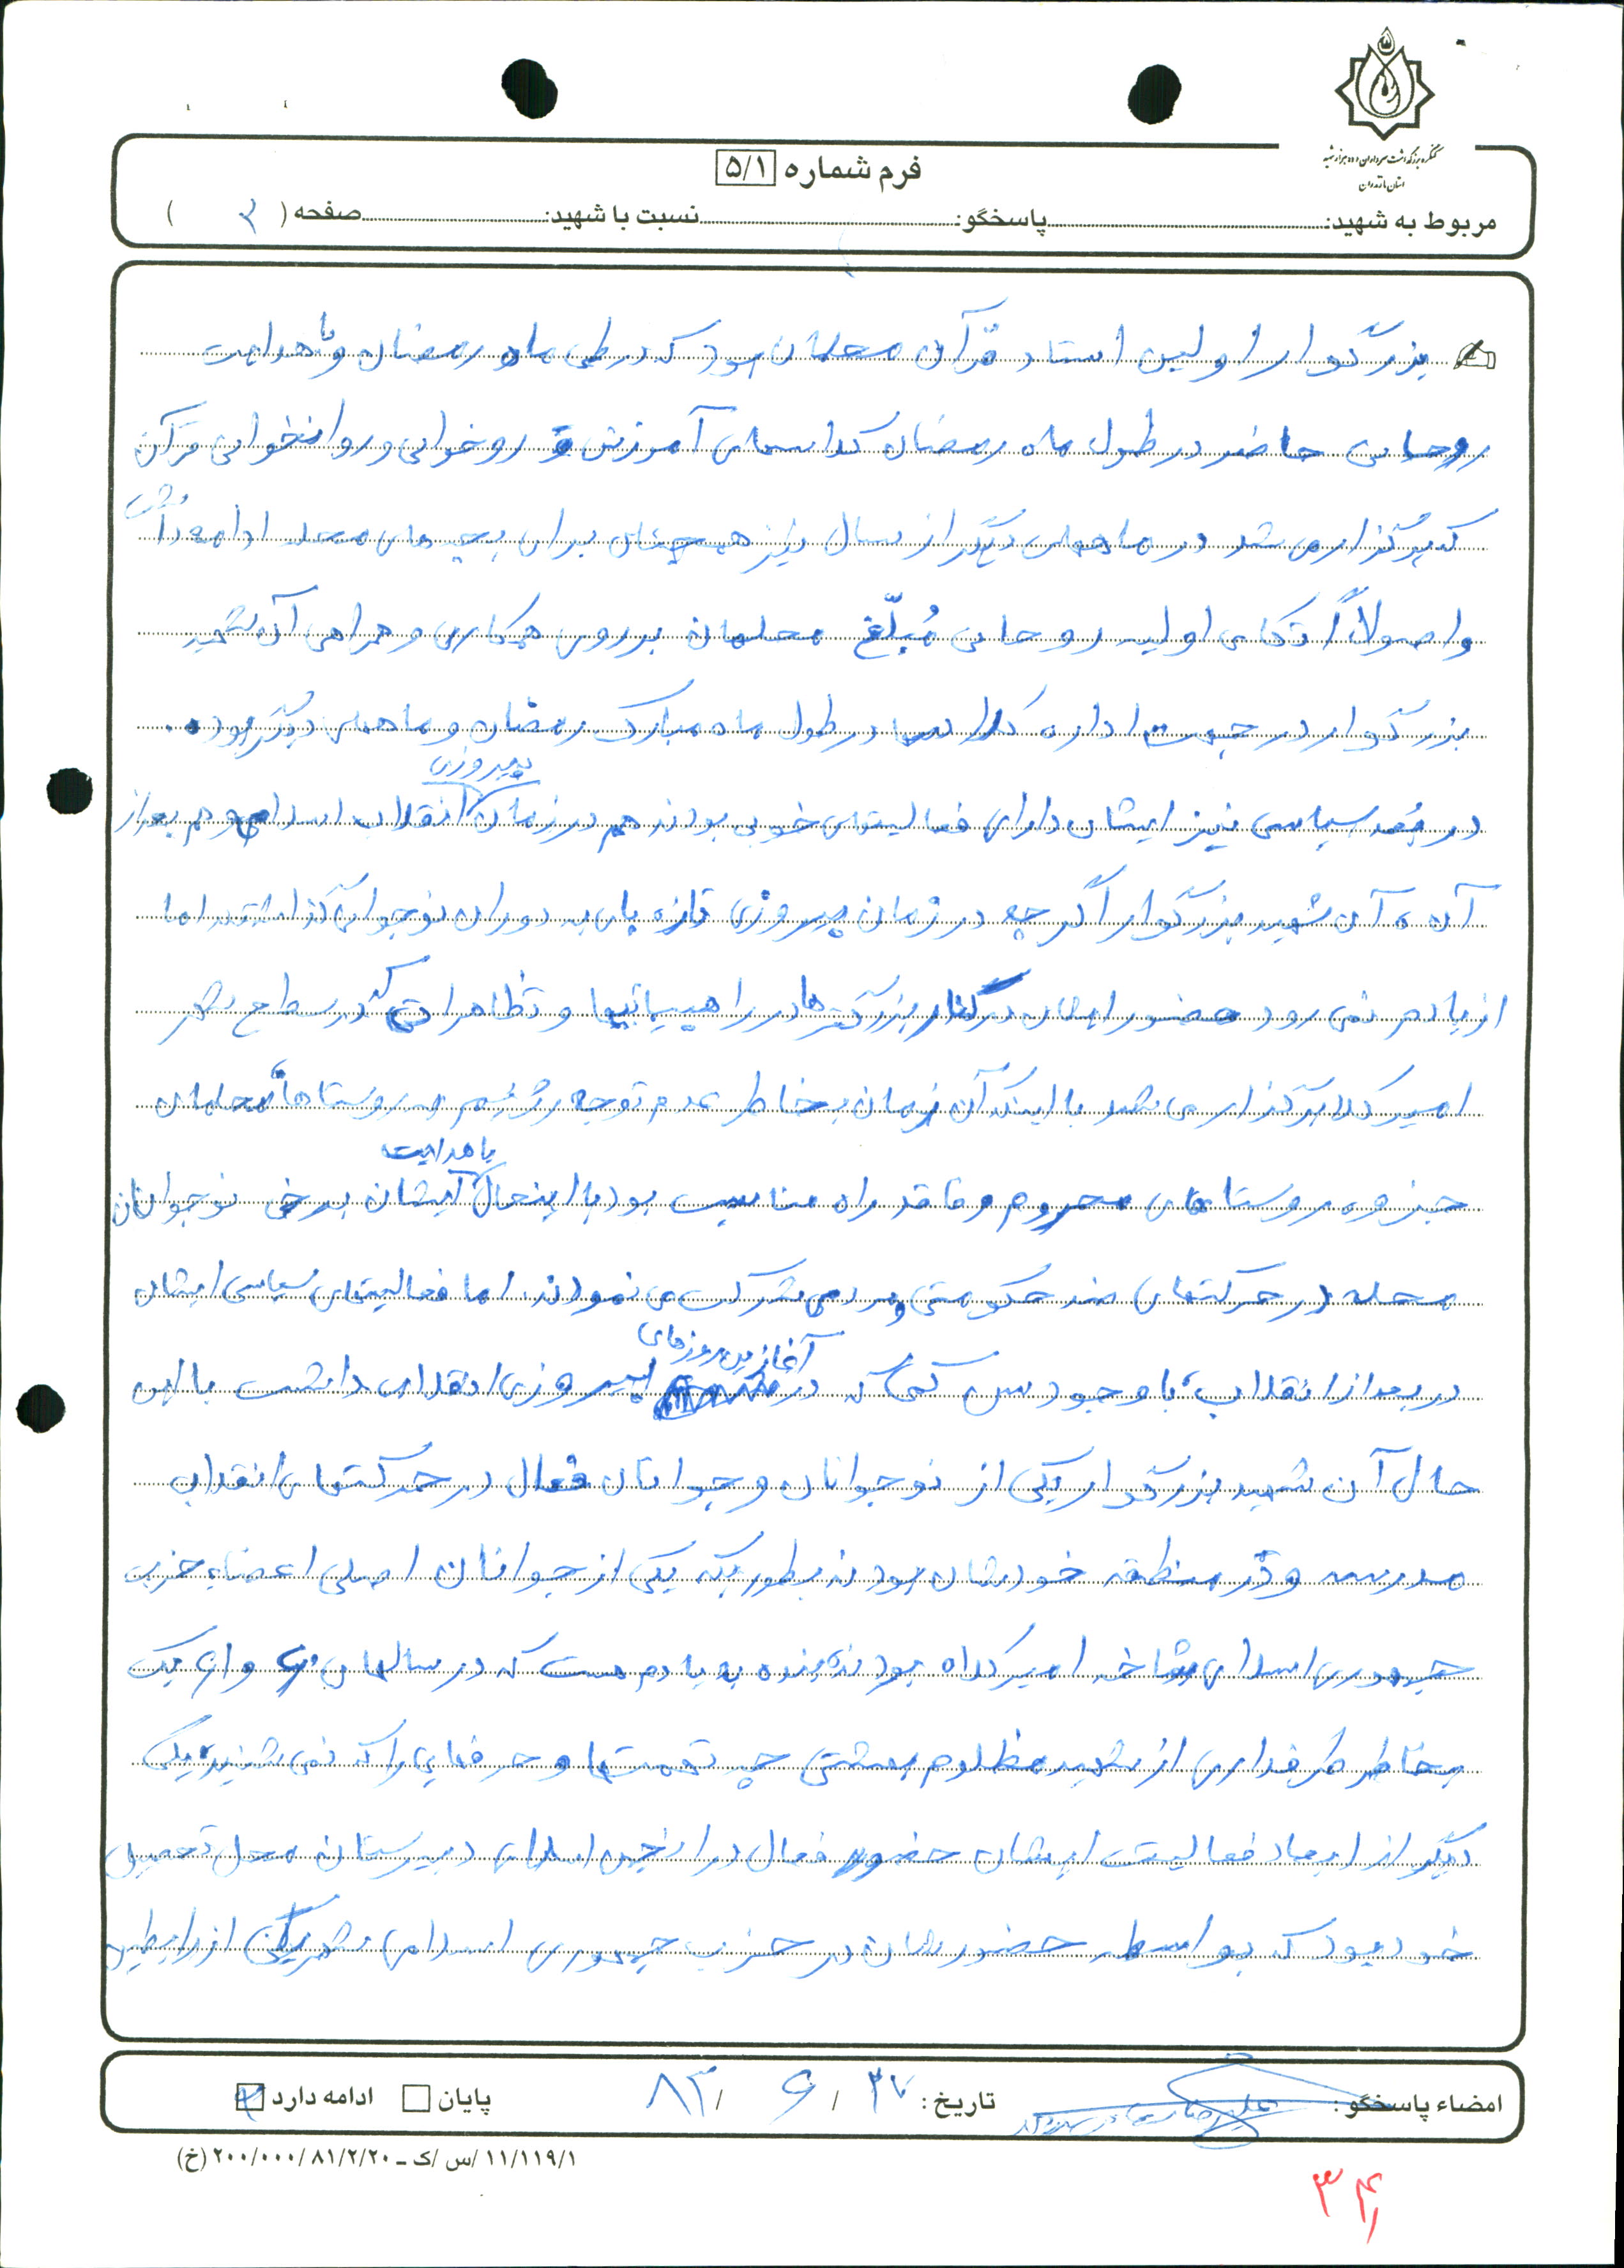 کنگره بزرگداشت سرداران و ده هزار شهید
استان مازندران
فرم شماره ۵/۱
مربوط به شهید: پاسخگو: نسبت با شهید: صفحه ( ۲ )
بزرگوار اولین استاد قرآن محلمان بود که در طی ماه رمضان و با هدایت
روحانی حاضر در طول ماه رمضان کلاسهای آموزش روخوانی و روانخوانی قرآن
که برگزار می شد در ماههای دیگر از سال نیز همچنان برای بچه های محله ادامه داشت
و اصولاً اتکای اولیه روحانی مُبلّغ محلمان بر روی همکاری و همراهی آن شهید
بزرگوار در جهت اداره کلاسها در طول ماه مبارک رمضان و ماههای دیگر بود.
در بُعد سیاسی نیز ایشان دارای فعالیتهای خوبی بودند هم در زمان پیروزی انقلاب اسلامی و هم بعد از
آن، آن شهید بزرگوار اگر چه در زمان پیروزی تازه پای به دوران نوجوانی گذاشتند اما
از یادم نمی رود حضور ایشان در کنار بزرگترها در راهپیمائیها و تظاهراتی که در سطح شهر
امیرکلا برگزار می شد با اینکه آن زمان بخاطر عدم توجه رژیم به روستاها، محلمان
جزو روستاهای محروم و فاقد راه مناسب بود با اینحال با هدایت ایشان برخی نوجوانان
محله در حرکتهای ضد حکومتی و مردمی شرکت می نمودند. اما فعالیتهای سیاسی ایشان
در بعد از انقلاب، با وجود سن کمی که در آغازین روزهای پیروزی انقلاب داشت با این
حال آن شهید بزرگوار یکی از نوجوانان و جوانان فعال در حرکتهای انقلاب
مدرسه و در منطقه خودشان بودند بطوریکه یکی از جوانان اصلی اعضاء حزب
جمهوری اسلامی شاخه امیرکلاه بودند بنده به یادم هست که در سالهای ۶۰ و ۶۱ یک
بخاطر طرفداری از شهید مظلوم بهشتی چه تهمتها و حرفهایی را که نمی شنید، یکی
دیگر از ابعاد فعالیت ایشان حضور فعال در انجمن اسلامی دبیرستان محل تحصیل
خود بود که بواسطه حضورشان در حزب جمهوری اسلامی شهر یکی از رابطین
امضاء پاسخگو: تاریخ: ۲۷ / ۶ / ۸۳ پایان ادامه دارد
۱۱/۱۱۹/۱ /س /ک ـ ۸۱/۲/۲۰ /۲۰۰/۰۰۰ (خ)
۳۴